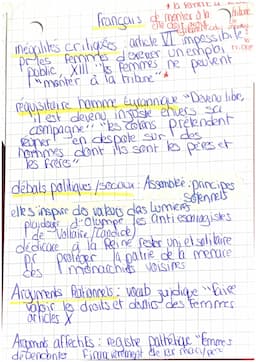 * la femme a
français
de monter à la tribune
inégalités critiquées : article VI impossibilité
pr les femmes d'exercer un emploi
public XIII "les femmes ne peuvent
"monter à la tribune"
réquisitoire homme tyrannique "Devenu libre,
il est devenu injuste envers sa
compagne" "les colons prétendent
régner en despote sur des
hommes dont ils sont les pères et
les frères"
débats politiques/sociaux : Assemblée : principes
solennels
elle s'inspire des valeurs des Lumières
plaidoyer d'Olympe les antiesclavagistes
de Voltaire (Candide)
dédicace à la Reine rester uni et solitaire
pr protéger la patrie de la menace
des monarchies voisines
Arguments Rationnels : vocab juridique "faire
valoir les droits et devoirs des femmes
articles X
Arguments affectifs : registre pathétique "femmes
dépendantes financièrement de leur mari/père